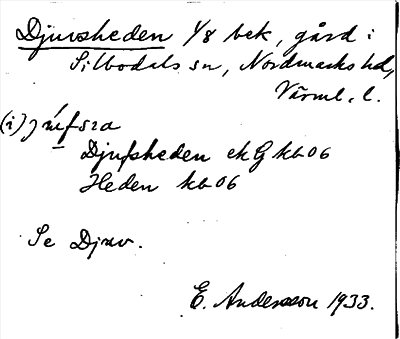 Djuvsheden 1/8 bek, gård i
Silbodals sn, Nordmarks hd,
Värml. l.
(i) júfsra
Djufsheden ekG kb 06
Heden kb 06
Se Djuv.
E. Andersson 1933.